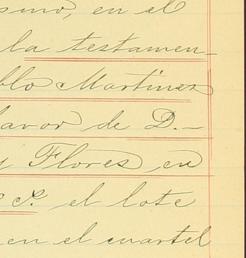 ismo, en el
la testamen-
blo Martinez
favor de D.—
y Flores en
S. el lote
en el cuartel